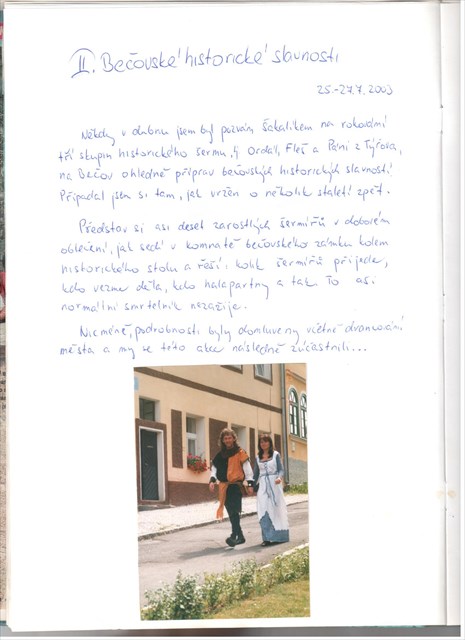 II. Bečovské historické slavnosti
25.-27.7.2003
Někdy v dubnu jsem byl pozván Šakalikem na rokování
tří skupin historického šermu, tj Ordál, Fleš a Páni z Týřova,
na Bečov ohledně příprav bečovských historických slavností
Připadal jsem si tam, jak vržen o několik staletí zpět.
Představ si asi deset zarostlých šermířů v dobovém
oblečení, jak sedí v komnatě bečovského zámku kolem
historického stolu a řeší: kolik šermířů přijede,
kdo vezme děla, kdo halapartny a tak. To asi
normální smrtelník nezažije.
Nicméně, podrobnosti byly domluveny včetně drancování
města a my se této akce následně zúčastnili...